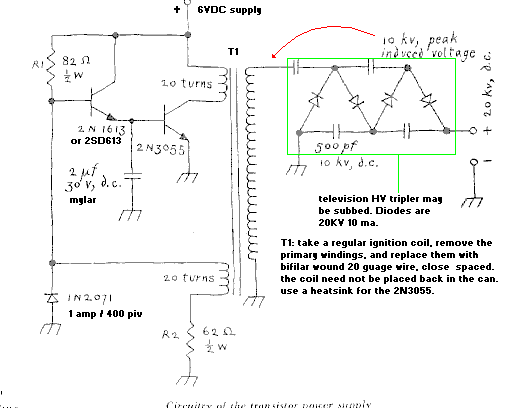 + 6VDC supply
T1
10 kv, peak
induced voltage
R1
82 Ω
1/2 W
20 turns
2N1613
or 2SD613
2N3055
2 μf
30 V, d.c.
mylar
500 pf
10 kv, d.c.
+ 20 kv, d.c.
-
television HV tripler may
be subbed. Diodes are
20KV 10 ma.
T1: take a regular ignition coil, remove the
primary windings, and replace them with
bifilar wound 20 guage wire, close spaced.
the coil need not be placed back in the can.
use a heatsink for the 2N3055.
20 turns
1N2071
1 amp / 400 piv
R2
62 Ω
1/2 W
Circuitry of the transistor power supply